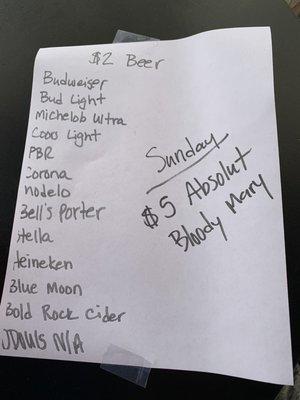 $2 Beer
Budweiser
Bud Light
Michelob Ultra
Coors Light
PBR
Corona
Modelo
Bell's Porter
Stella
Heineken
Blue Moon
Bold Rock Cider
N/A
Sunday
$5 Absolut
Bloody Mary